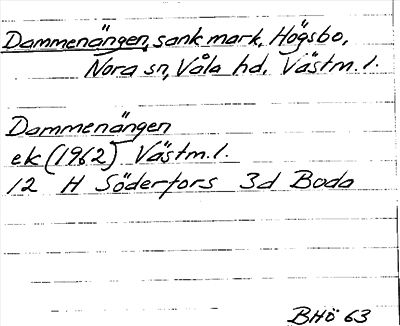 Dammenängen, sank mark, Högsbo,
Nora sn, Våla hd. Västm.l.
Dammenängen
ek (1962) Västm.l.
12 H Söderfors 3d Boda
BHö 63